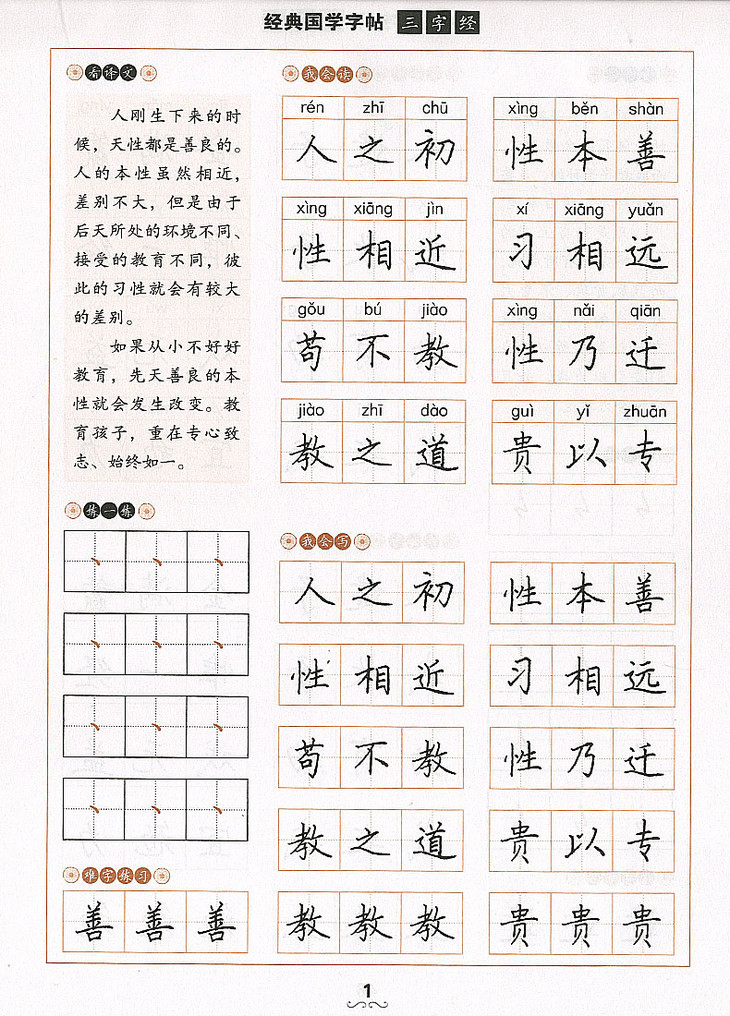 经典国学字帖 三字经
看译文
人刚生下来的时
候，天性都是善良的。
人的本性虽然相近，
差别不大，但是由于
后天所处的环境不同、
接受的教育不同，彼
此的习性就会有较大
的差别。
如果从小不好好
教育，先天善良的本
性就会发生改变。教
育孩子，重在专心致
志、始终如一。
我会读
rén zhī chū xìng běn shàn
人之初 性本善
xìng xiāng jìn xí xiāng yuǎn
性相近 习相远
gǒu bú jiào xìng nǎi qiān
苟不教 性乃迁
jiào zhī dào guì yǐ zhuān
教之道 贵以专
练一练
我会写
人之初 性本善
性相近 习相远
苟不教 性乃迁
教之道 贵以专
难字练习
善善善 教教教 贵贵贵
1